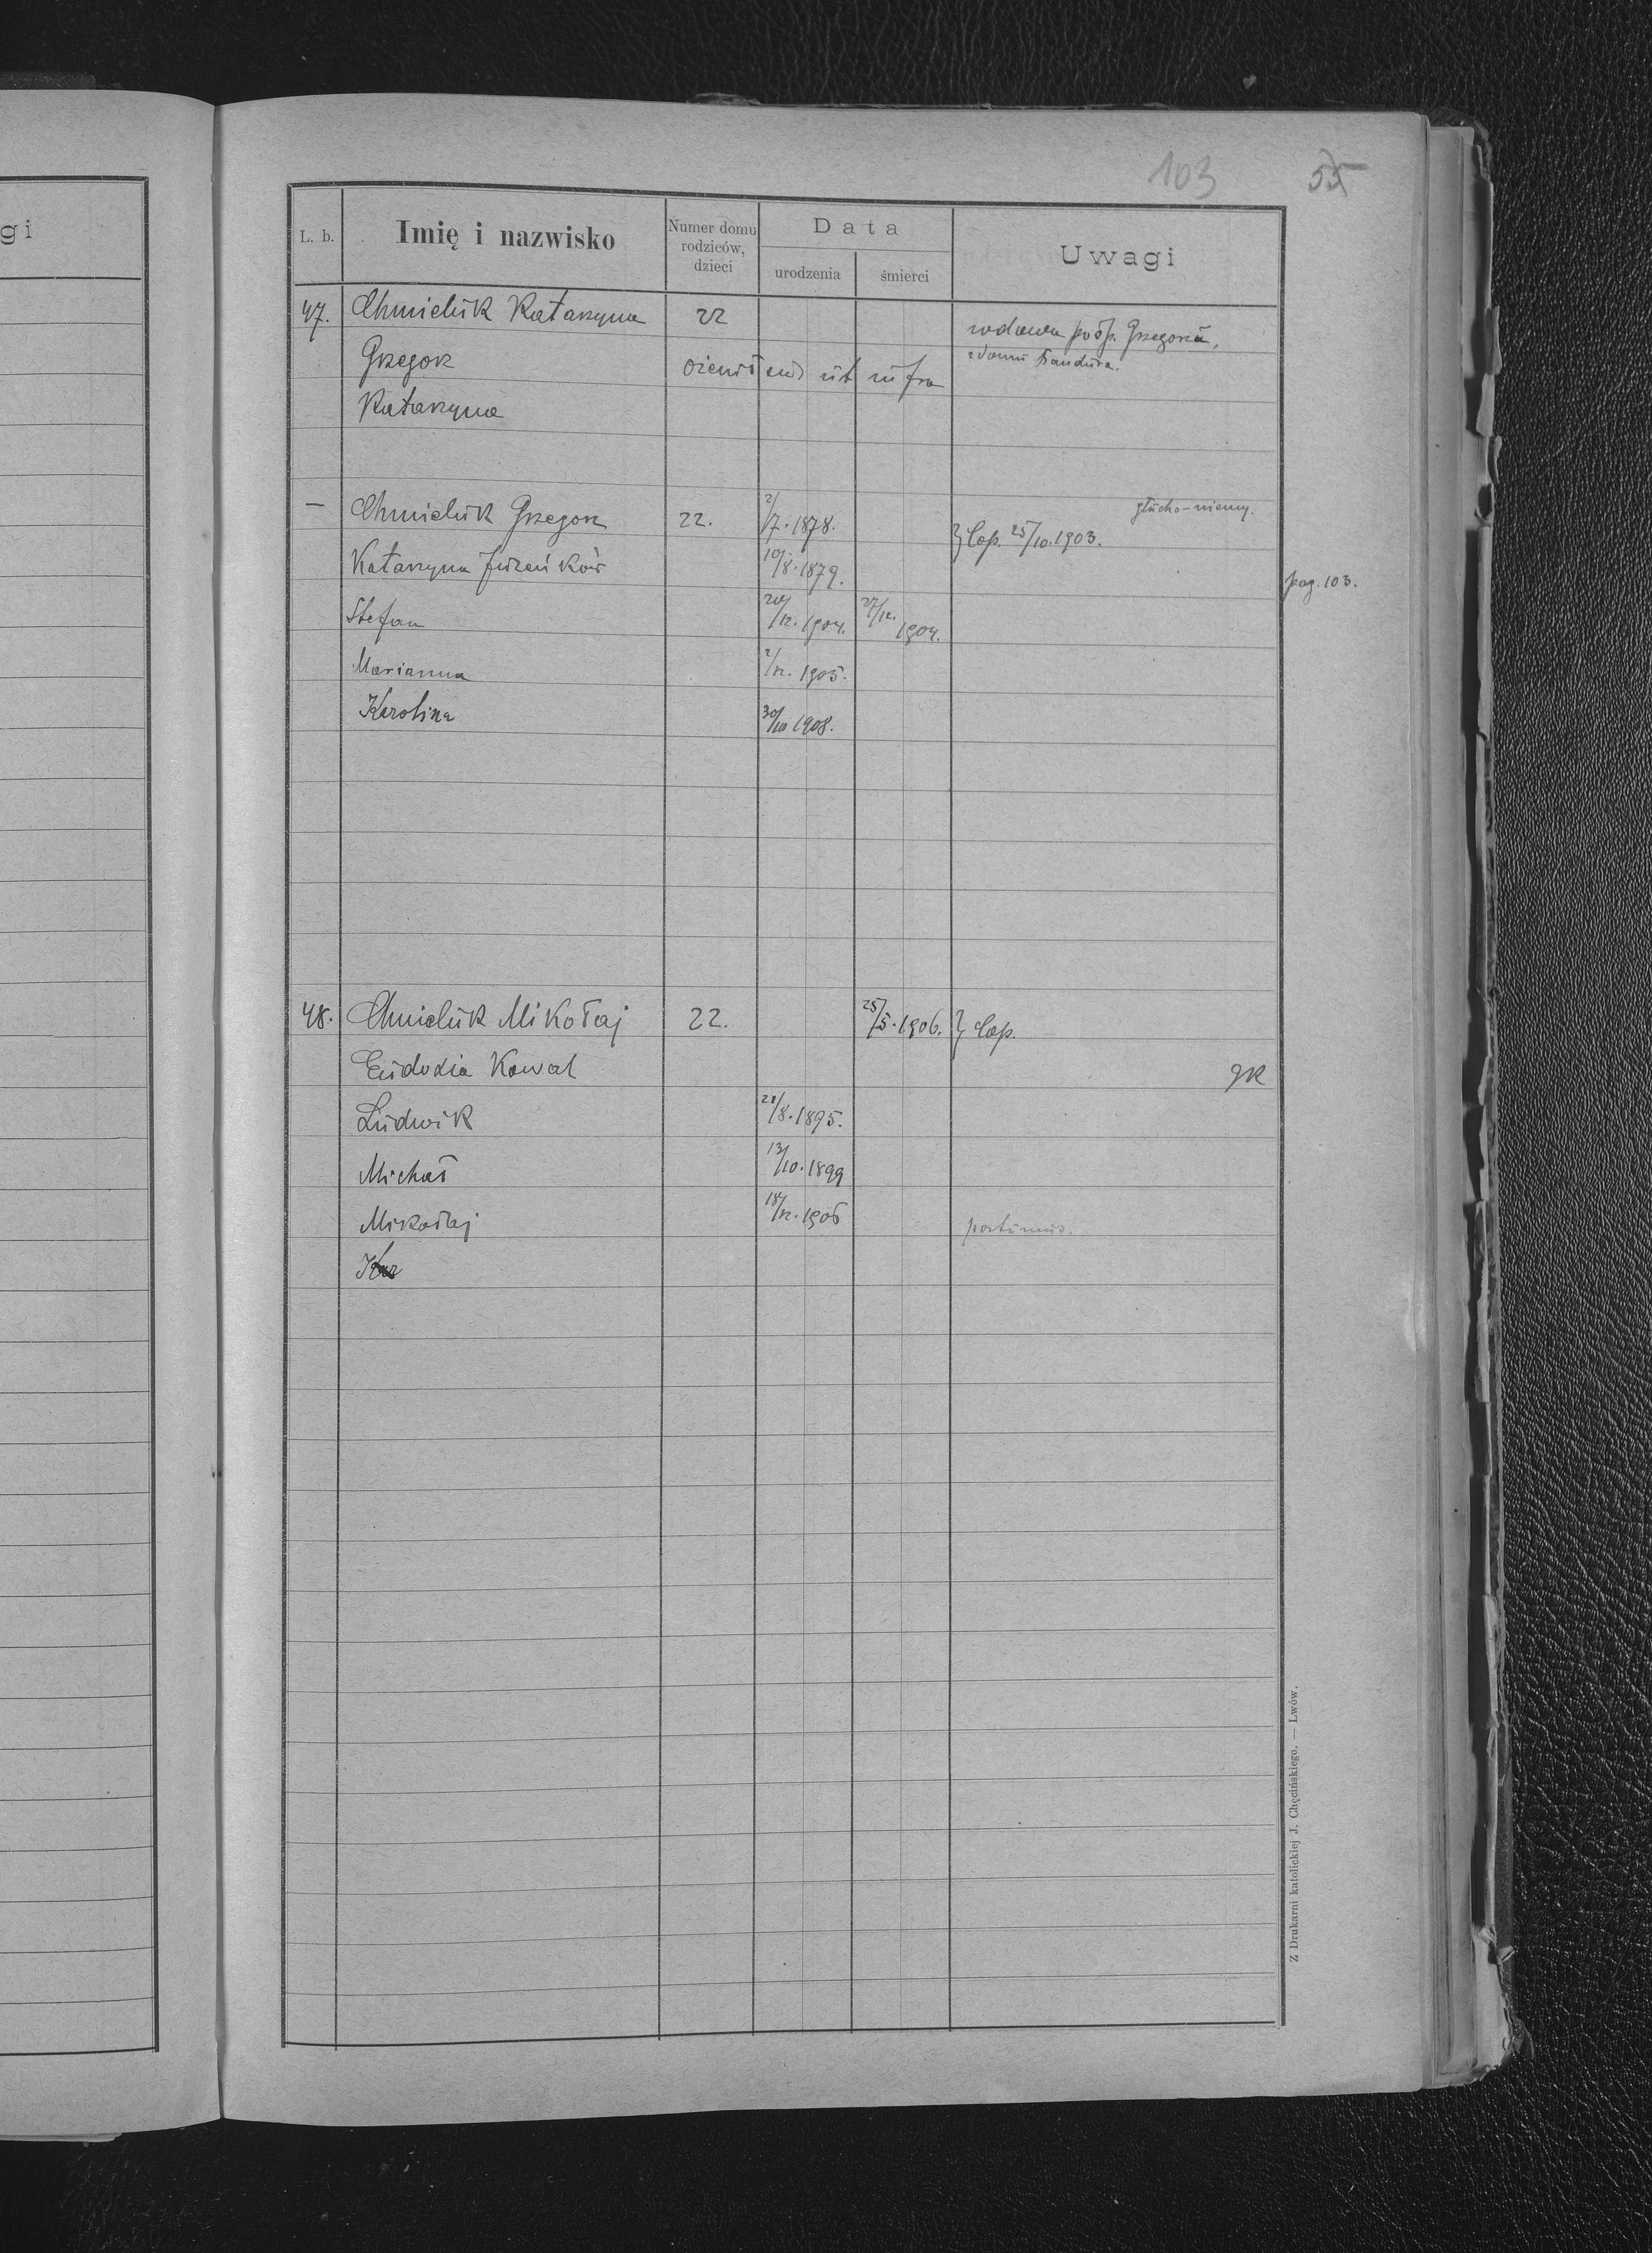 gi
103 55
L. b. Imię i nazwisko Numer domu rodziców, dzieci Data urodzenia śmierci Uwagi
47. Chmieluk Katarzyna 22 wdowa po śp. Grzegorzu,
Grzegorz ożenił się ut infra z domu
Katarzyna
– Chmieluk Grzegorz 22. 2/7. 1878. głucho-niemy.
} Cop. 25/10. 1903.
Katarzyna 10/8. 1879. pag. 103.
Stefan 20/12. 1904. 27/12. 1904.
Marianna 2/12. 1905.
Karolina 30/10 1908.
48. Chmieluk Mikołaj 22. 25/5. 1906. } Cop.
Eudoxia Kowal gR
Ludwik 21/8. 1895.
Michał 13/10. 1899
Mikołaj 18/12. 1906 postumus.
Z Drukarni katolickiej J. Chęcińskiego. — Lwów.